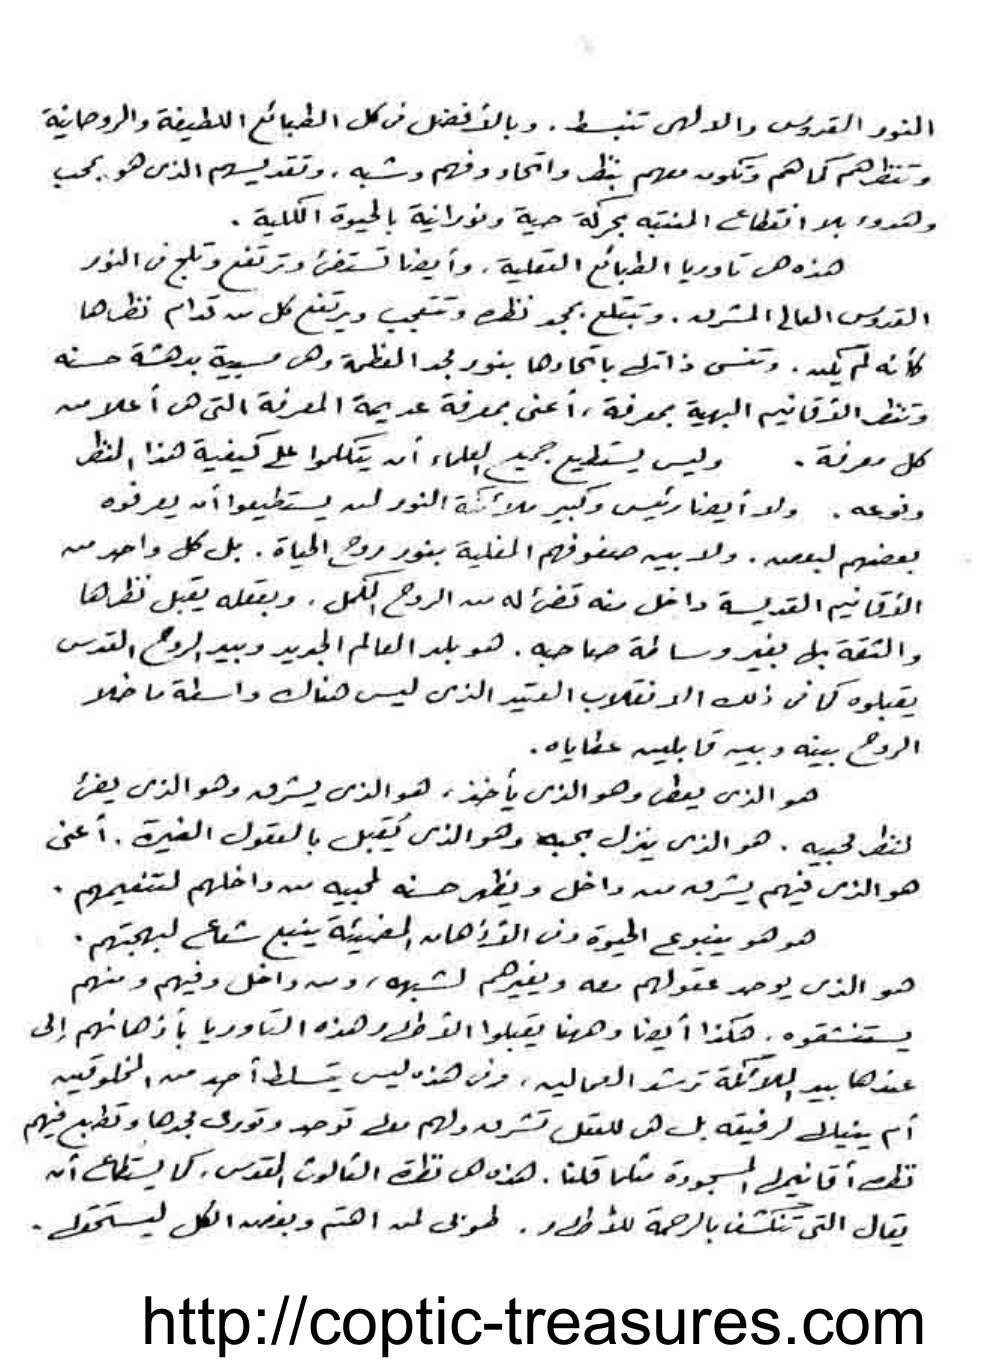 النور القدوس والالهى تنبسط . وبالأفضل فى كل الطبائع اللطيفة والروحانية
وتنظرهم كما هم وتكون معهم بنظر واتحاد وفهم وشبه ، وتقديسهم الذى هو بحب
وهدوء بلا انقطاع المنتبه بحركة حية ونورانية بالحيوة الكلية .
هذه هى تاوريا الطبائع العقلية . وأيضا تستضئ وترتفع وتلج فى النور
القدوس العالى المشرق . وتبتلع بمجد نظره وتتعجب ويرتفع كل من قدام نظرها
كأنه لم يكن . وتنسى ذاتها باتحادها بنور مجد العظمة وهى مسبية بدهشة حسنه
وتنظر الأقانيم البهية بمعرفة ، أعنى بمعرفة عديمة المعرفة التى هى أعلا من
كل معرفة . وليس يستطيع جميع العلماء أن يتكلموا على كيفية هذا المنظر
ونوعه . ولا أيضا رئيس وكبير ملائكة النور لن يستطيعوا أن يعرفوه
بعضهم لبعض . ولا بين صفوفهم المغلية بنور روح الحياة . بل كل واحد من
الأقانيم القديسة داخل منه تضئ له من الروح المكمل . وبعقله يقبل نظرها
والثقة بها بغير وساطة صاحبه . هو بلد العالم الجديد وبيد الروح القدس
يقبلوه كما فى ذلك الانقلاب العتيد الذى ليس هناك واسطة ما خلا
الروح بينه وبين قابليين عطاياه .
هو الذى يعطى وهو الذى يأخذ ، هو الذى يشرق وهو الذى يضئ
لنظر محبيه . هو الذى ينزل بحبه وهو الذى يُقبل بالعقول الغيرة . أعنى
هو الذى فيهم يشرق من داخل ويظهر حسنه لمحبيه من داخلهم لتنعيمهم .
هو هو ينبوع الحيوة وفى الأذهان المضيئة ينبع شعاع لبهجتهم .
هو الذى يوحد عقولهم معه ويغيرهم لشبهه ، ومن داخل وفيهم ومنهم
يستنشقوه . هكذا أيضا وههنا يقبلوا الأطهار هذه التاوريا بأذهانهم إلى
عندها بيد الملائكة ترشد العماليين ، وفى هذه ليس يتسلط أحد من المخلوقين
أم ينيلها لرفيقه بل هى للعقل تشرق ولهم معها توحد وتورى مجدها وتطبع فيهم
نظر أقانيمها المسجودة مثلما قلنا . هذه هى نظرة الثالوث المقدس ، كما يستطاع أن
يقال التى تنكشف بالرحمة للأطهار . طوبى لمن اهتم وبغض الكل ليستحقها .
http://coptic-treasures.com